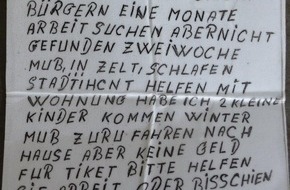 BÜRGERN EINE MONATE
ARBEIT SUCHEN ABER NICHT
GEFUNDEN ZWEI WOCHE
MUß, IN ZELT, SCHLAFEN
STADT HELFEN MIT
WOHNUNG HABE ICH 2 KLEINE
KINDER KOMMEN WINTER
MUß ZURU FAHREN NACH
HAUSE ABER KEINE GELD
FUR TIKET BITTE HELFEN
ARBEIT ODER BISSCHIEN